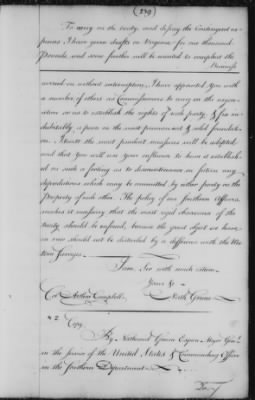 (239)
To carry on the treaty and defray the Contingent ex-
pences I have given drafts on Virginia for one thousand
Pounds and some further will be wanted to compleat the
Business
carried on without interruption, I have appointed you with
a number of others as Commissioners to carry on the negoc-
iation so as to establish the rights of each party, & fix in-
dubitably a peace on the most permanent & solid foundation
I trust the most prudent measures will be adopted
and that you will use your influence to have it establish-
ed on such a footing as to discountenance in future any
depredations which may be committed by either party on the
Property of each other. The policy of our Southern Affairs
makes it necessary that the most rigid observance of the
treaty should be enforced, because the great object we have
in view should not be disturbed by a difference with the Wes-
tern Savages.
I am, Sir with much esteem
Yours &c
Col. Arthur Campbell. Nath. Greene
No. 2. Copy
By Nathanael Greene Esquire Major Genl.
in the service of the United States & Commanding Officer
in the Southern Department